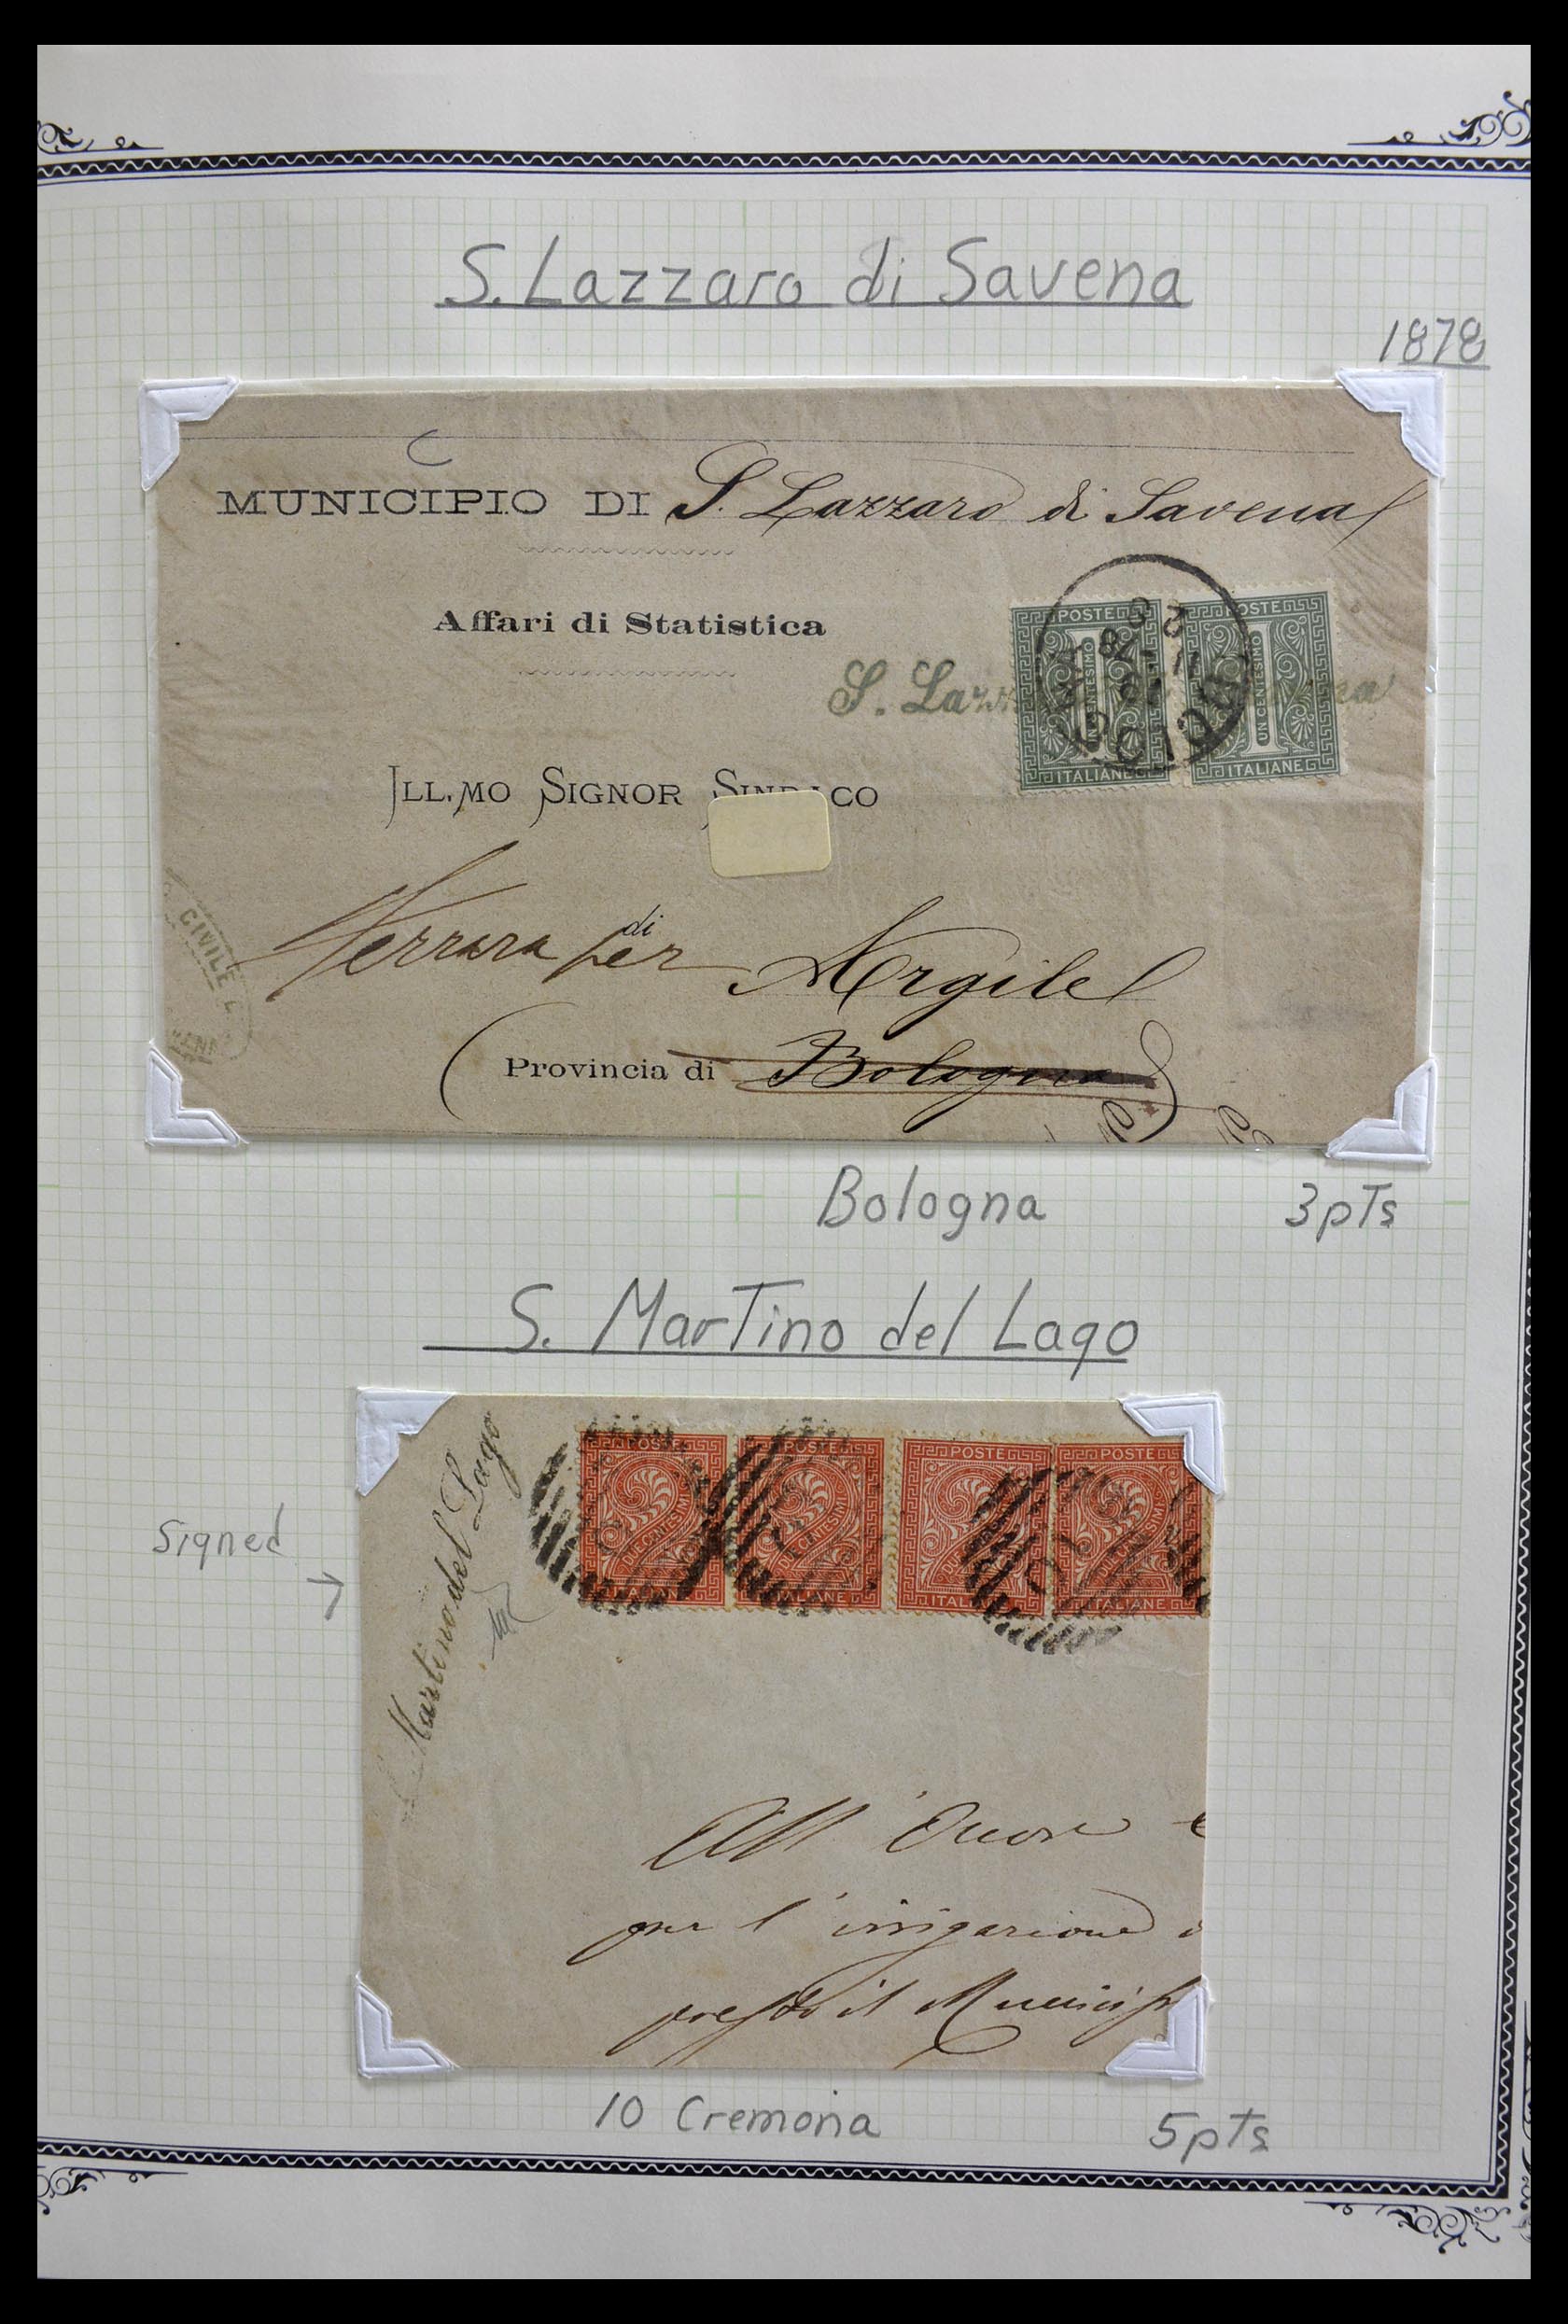 S. Lazzaro di Savena
1878
MUNICIPIO DI S. Lazzaro di Savena
Affari di Statistica
POSTE POSTE
UN CENTESIMO UN CENTESIMO
ITALIANE ITALIANE
S. Laz
ILL.MO SIGNOR SINDACO
CIVILE
di
Ferrara per Argile
Provincia di Bologna
Bologna 3pTs
S. MarTino del Lago
Martino del Lago
POSTE POSTE POSTE POSTE
2 2 2 2
DUE CENTESIMI DUE CENTESIMI DUE CENTESIMI DUE CENTESIMI
ITALIANE ITALIANE ITALIANE ITALIANE
Signed
All' Onore
per l'irrigazione
presso il Municip
10 Cremona 5pTs